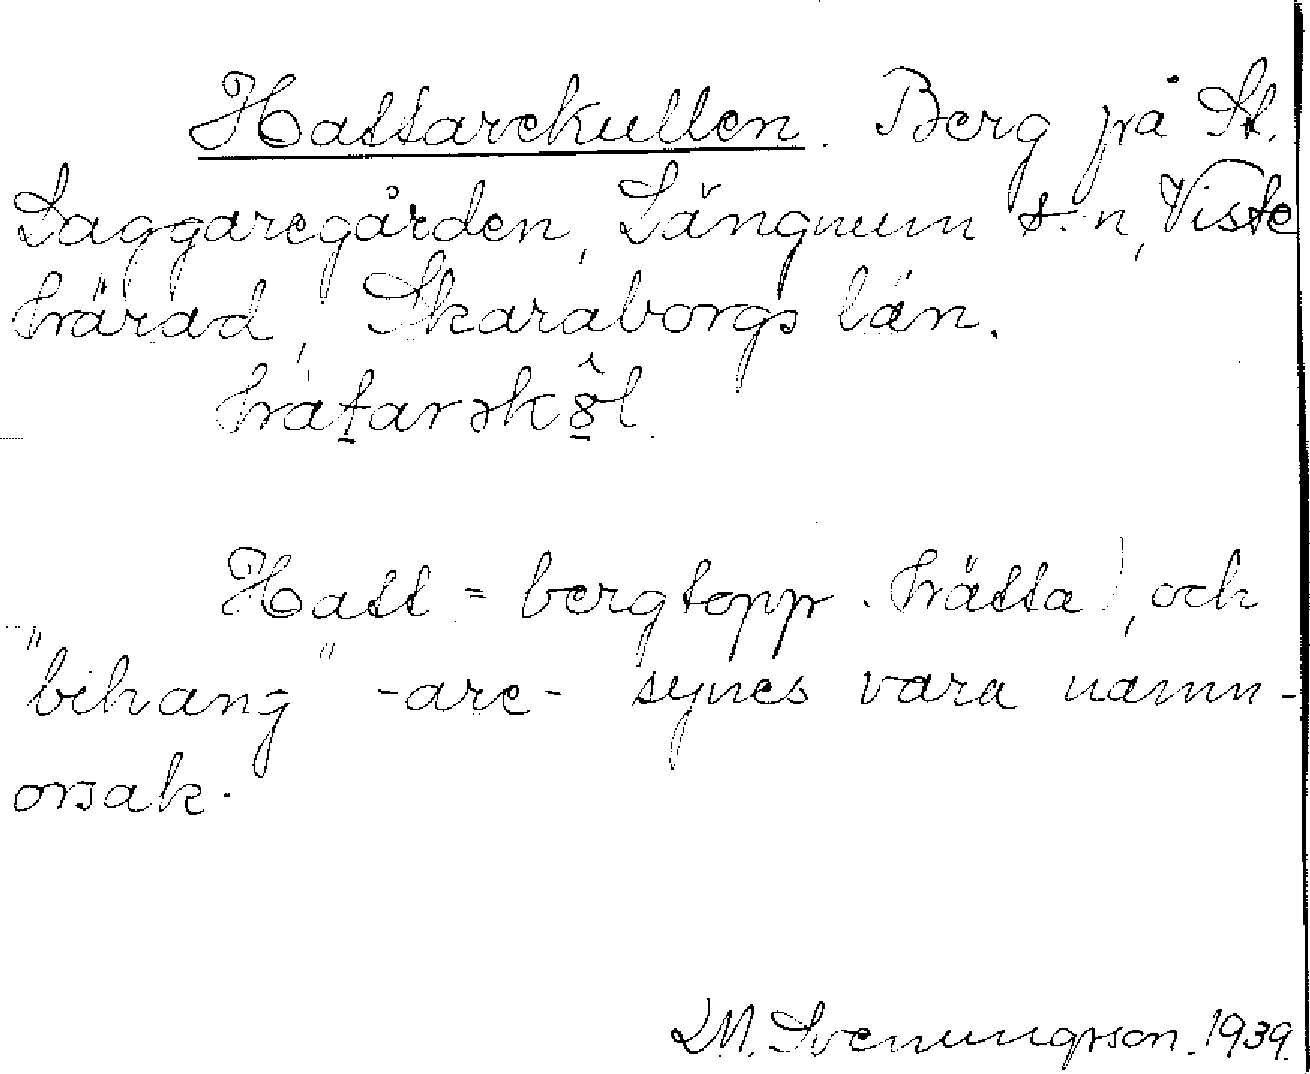 Hattarekullen. Berg på St.
Daggaregården, Långnum s:n, Viste
härad, Skaraborgs län.
Hatt = bergtopp (hätta), och
"bihang" -are- synes vara namn-
orsak.
D.M. Svenungsson. 1939.